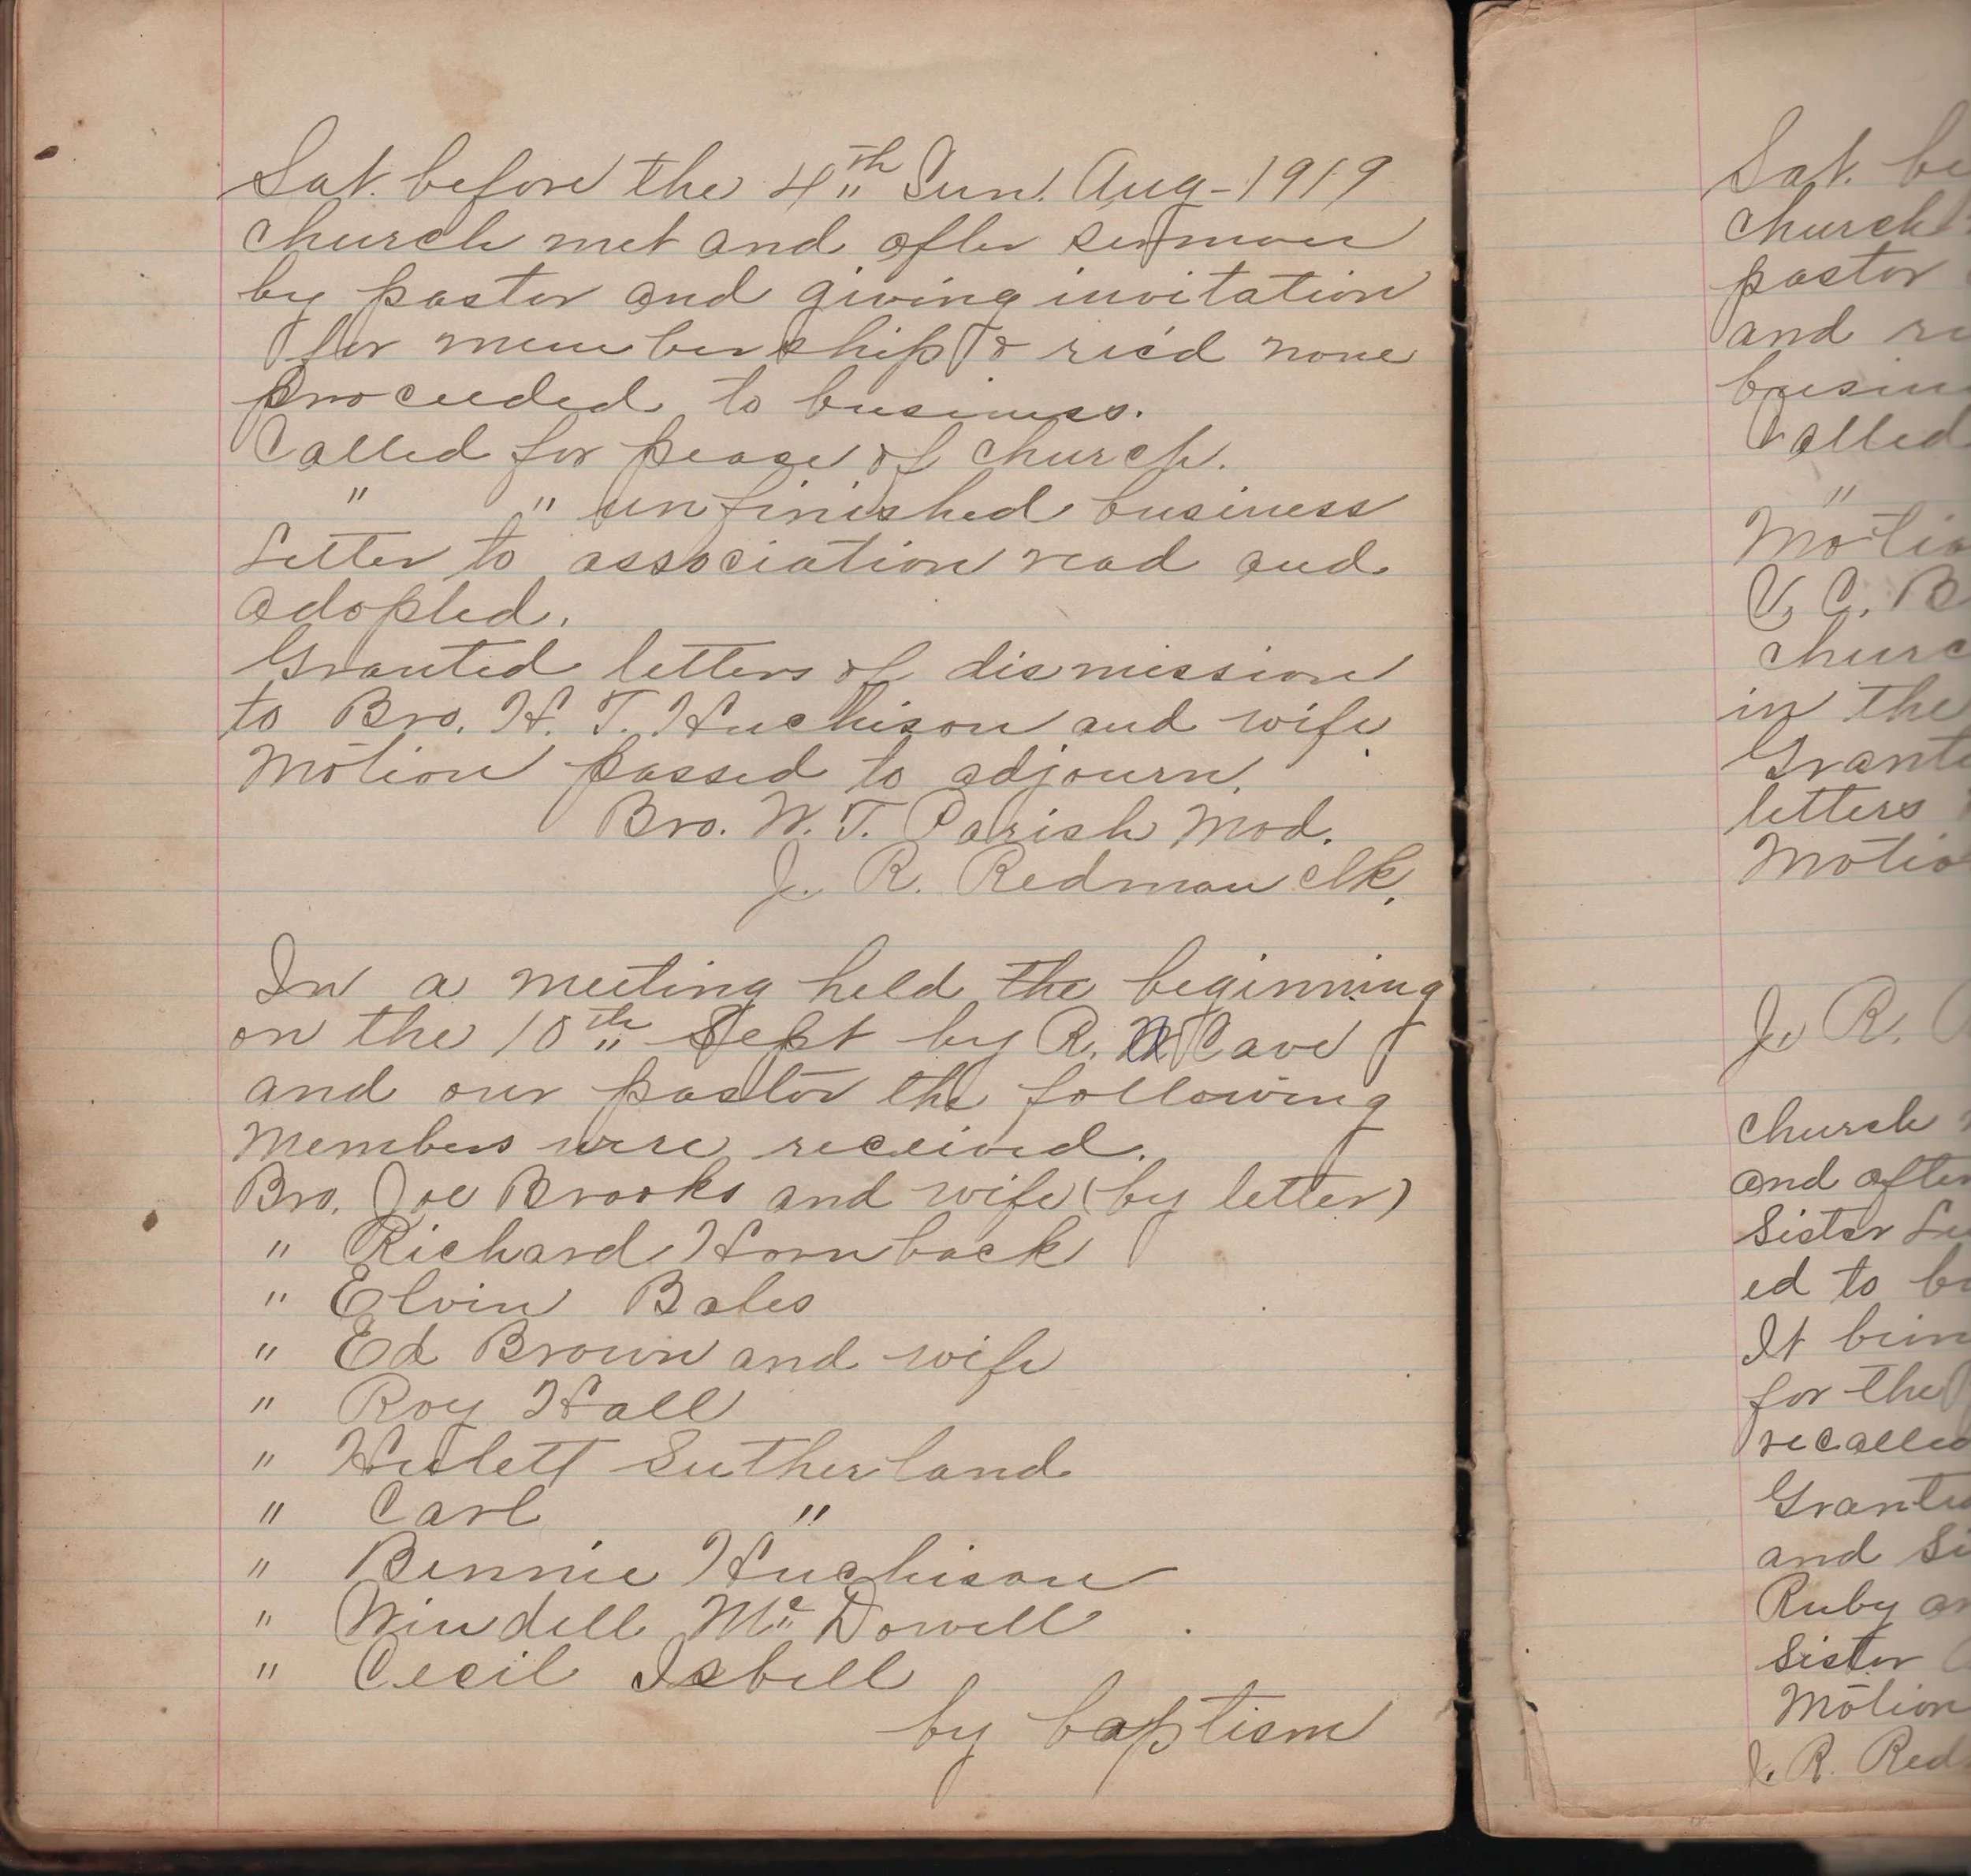 Sat. before the 4th Sun. Aug-1919
church met and after sermon
by pastor and giving invitation
for membership & rec'd none
proceeded to business.
Called for peace of church.
" " unfinished business
Letter to association read and
adopted.
Granted letters of dismission
to Bro. H. T. Huchison and wife
Motion passed to adjourn.
Bro. W. T. Parish Mod.
J. R. Redman clk.
In a meeting held the beginning
on the 10th Sept by R. Cave
and our pastor the following
members were received.
Bro. Joe Brooks and wife (by letter)
" Richard Hornback
" Elvin Bales
" Ed Brown and wife
" Roy Hall
" Hulett Sutherland
" Carl "
" Bennie Huchison
" Windell McDowell
" Cecil Isbell
by baptism
Sat. be
church
pastor
and re
busin
Called
"
Motio
V. C. B
churc
in the
Grante
letters
Motio
J. R.
church
and after
Sister
ed to b
It bein
for the
recalled
Grante
and Si
Ruby an
Sister
Motion
J. R. Red